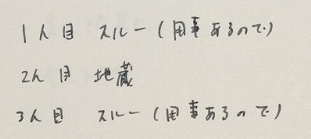 1人目 スルー(用事あるので)
2人目 地蔵
3人目 スルー(用事あるので)